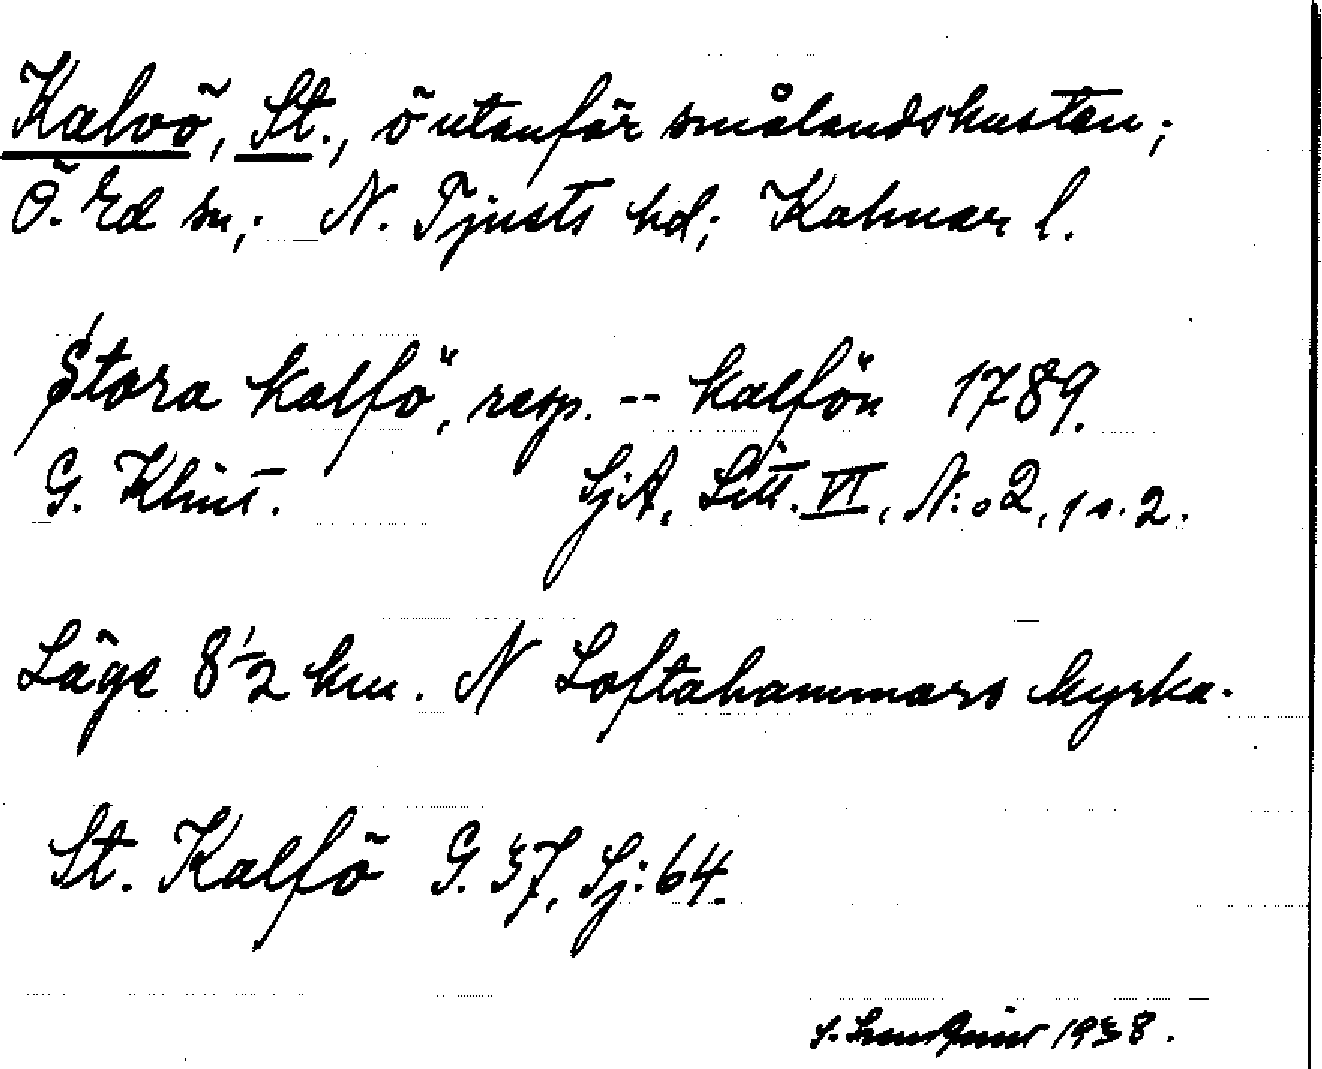 Kalvö, St., ö utanför smålandskusten;
Ö. Ed sn; N. Tjusts hd; Kalmar l.
Stora kalfö, resp. -- kalfön 1789.
G. Klint. SjA, Litt. VI, N:o 2, 1 o. 2.
Läge 8 1/2 km. N Loftahammars kyrka.
St. Kalfö G. 37, Sj: 64.
1938.